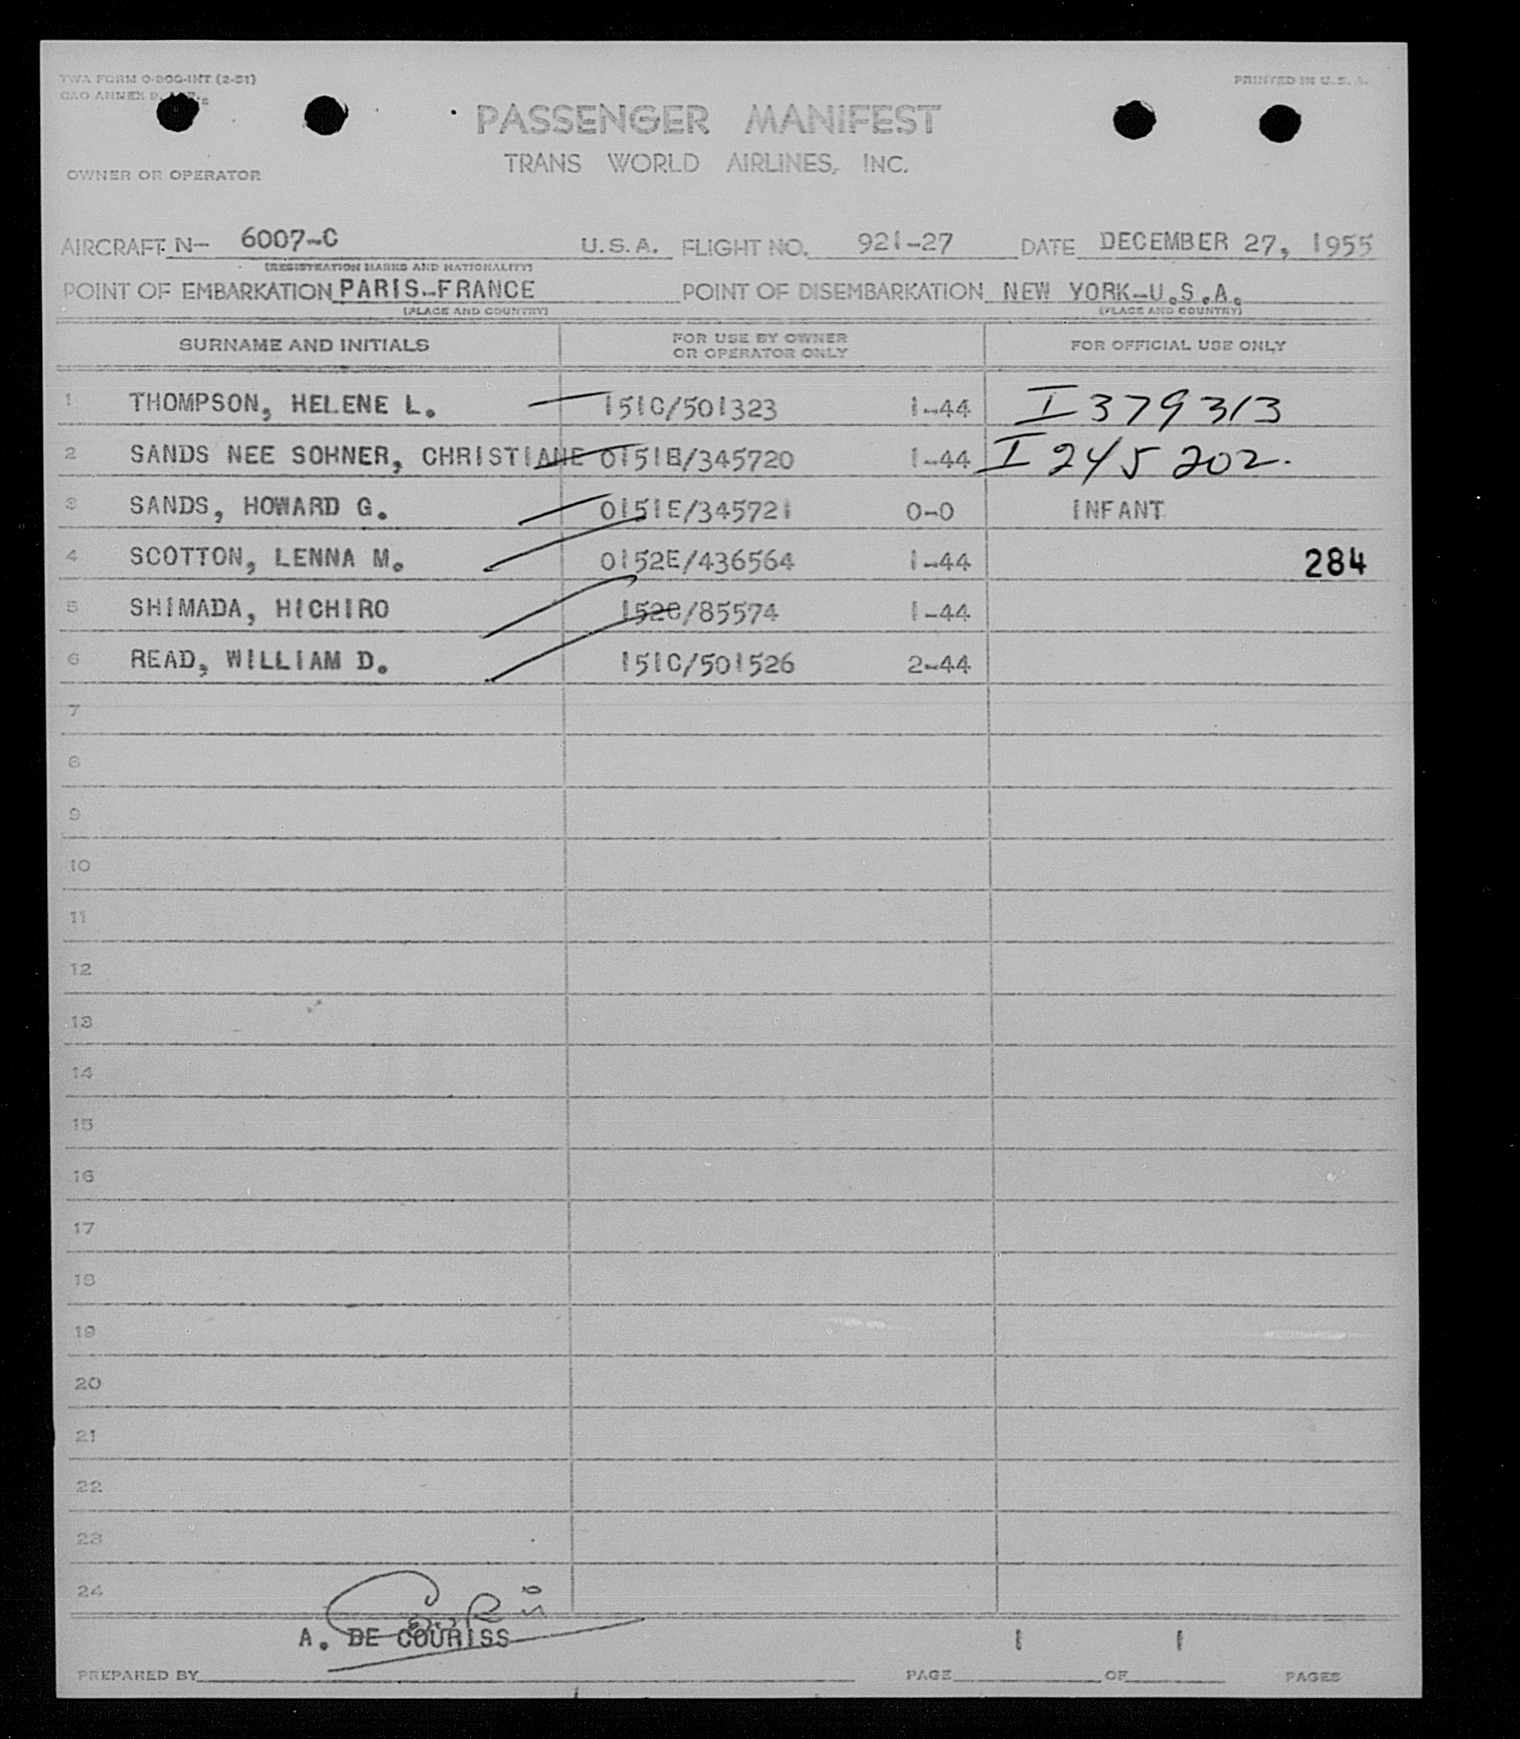 TWA FORM O-800-INT (2-51)
PRINTED IN U. S. A.
CAO ANNEX 9,
PASSENGER MANIFEST
TRANS WORLD AIRLINES, INC.
OWNER OR OPERATOR
AIRCRAFT N- 6007-C U.S.A. FLIGHT NO. 921-27 DATE DECEMBER 27, 1955
(REGISTRATION MARKS AND NATIONALITY)
POINT OF EMBARKATION PARIS-FRANCE POINT OF DISEMBARKATION NEW YORK-U.S.A.
(PLACE AND COUNTRY) (PLACE AND COUNTRY)
SURNAME AND INITIALS FOR USE BY OWNER OR OPERATOR ONLY FOR OFFICIAL USE ONLY
1 THOMPSON, HELENE L. 151C/501323 1-44 I 379313
2 SANDS NEE SOHNER, CHRISTIANE 0151E/345720 1-44 I 245202.
3 SANDS, HOWARD G. 0151E/345721 0-0 INFANT
4 SCOTTON, LENNA M. 0152E/436564 1-44 284
5 SHIMADA, HICHIRO 152C/85574 1-44
6 READ, WILLIAM D. 151C/501526 2-44
7
8
9
10
11
12
13
14
15
16
17
18
19
20
21
22
23
24
A. DE COURISS 1 1
PREPARED BY PAGE OF PAGES